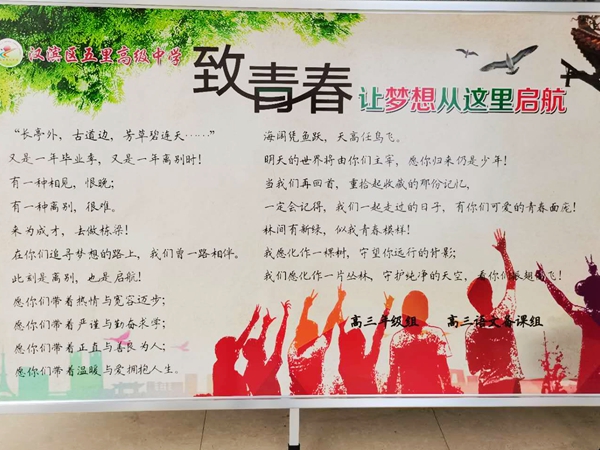 汉滨区五里高级中学
致青春
让梦想从这里启航
“长亭外，古道边，芳草碧连天……”
又是一年毕业季，又是一年离别时！
有一种相见，恨晚；
有一种离别，很难。
来为成才，去做栋梁！
在你们追寻梦想的路上，我们曾一路相伴。
此刻是离别，也是启航！
愿你们带着热情与宽容迈步；
愿你们带着严谨与勤奋求学；
愿你们带着正直与善良为人；
愿你们带着温暖与爱拥抱人生。
海阔凭鱼跃，天高任鸟飞。
明天的世界将由你们主宰，愿你归来仍是少年！
当我们再回首，重拾起收藏的那份记忆，
一定会记得，我们一起走过的日子，有你们可爱的青春面庞！
林间有新绿，似我青春模样！
我愿化作一棵树，守望你远行的背影；
我们愿化作一片丛林，守护纯净的天空，看你们振翅高飞！
高三年级组 高三语文备课组